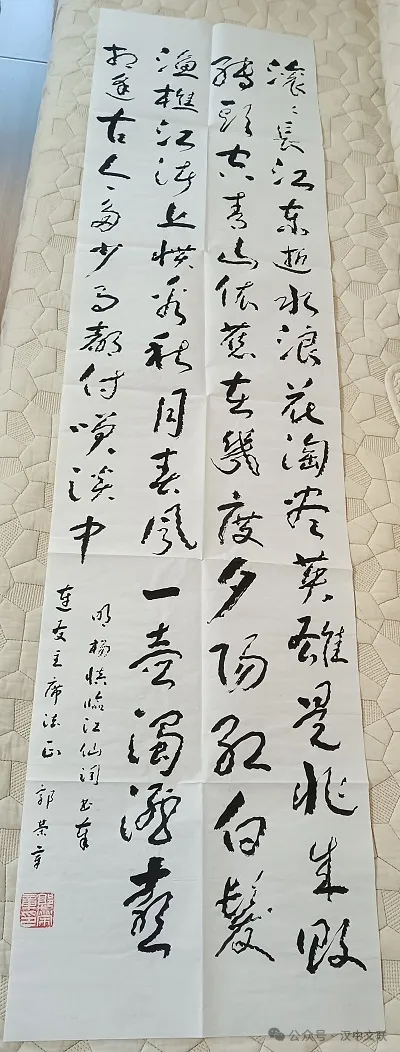 滚〻長江東逝水浪花淘尽英雄是非成敗
轉頭空青山依舊在幾度夕阳红白髮
渔樵江渚上惯看秋月春風一壶濁酒喜
相逢古今多少事都付笑談中
明楊慎临江仙词书奉
友主席法正 郭荣章
公众号 · 汉中文联